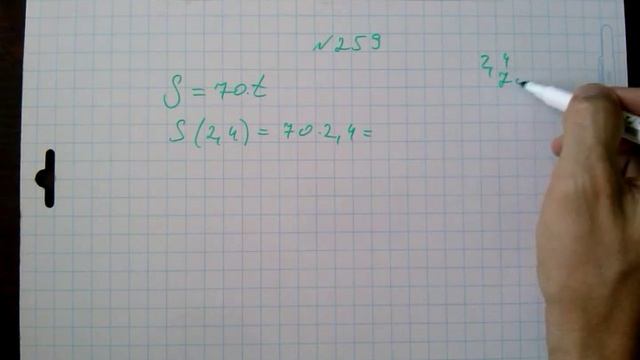 №259
S = 70·t
S(2,4) = 70·2,4 =
2,4
70